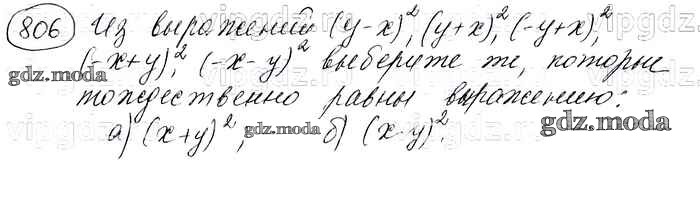 806 Из выражений (y-x)², (y+x)², (-y+x)²,
(-x+y)², (-x-y)² выберите те, которые
тождественно равны выражению:
а) (x+y)²; б) (x-y)².
gdz.moda
gdz.moda
gdz.moda
gdz.moda